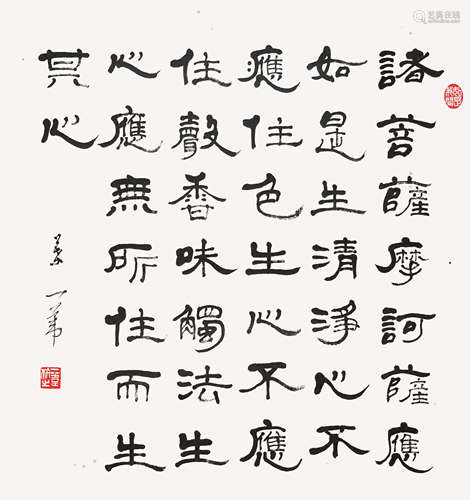 諸菩薩摩訶薩應
如是生清淨心不
應住色生心不應
住聲香味觸法生
心應無所住而生
其心
一葦